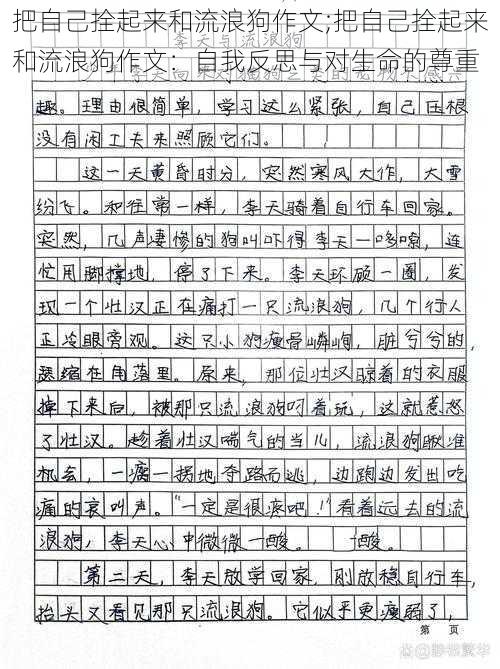 把自己拴起来和流浪狗作文;把自己拴起来
和流浪狗作文：自我反思与对生命的尊重
李天与流浪狗
李天向来对猫狗之类的宠物不感兴
趣。理由很简单，学习这么紧张，自己压根
没有闲工夫来照顾它们。
这一天黄昏时分，突然寒风大作，大雪
纷飞。和往常一样，李天骑着自行车回家。
突然，几声凄惨的狗叫吓得李天一哆嗦，连
忙用脚撑地，停了下来。李天环顾一圈，发
现一个壮汉正在痛打一只流浪狗，几个行人
正冷眼旁观。这只小狗瘦骨嶙峋，脏兮兮的，
瑟缩在角落里。原来，那位壮汉晾着的衣服
掉下来后，被那只流浪狗叼着玩，这就惹怒
了壮汉。趁着壮汉喘气的当儿，流浪狗瞅准
机会，一瘸一拐地夺路而逃，边跑边发出吃
痛的哀叫声。“一定是很疼吧！”看着远去的流
浪狗，李天心中微微一酸。 一酸。
第二天，李天放学回家，刚放稳自行车，
抬头又看见那只流浪狗。它似乎更瘦弱了，
第 页
@静微繁华